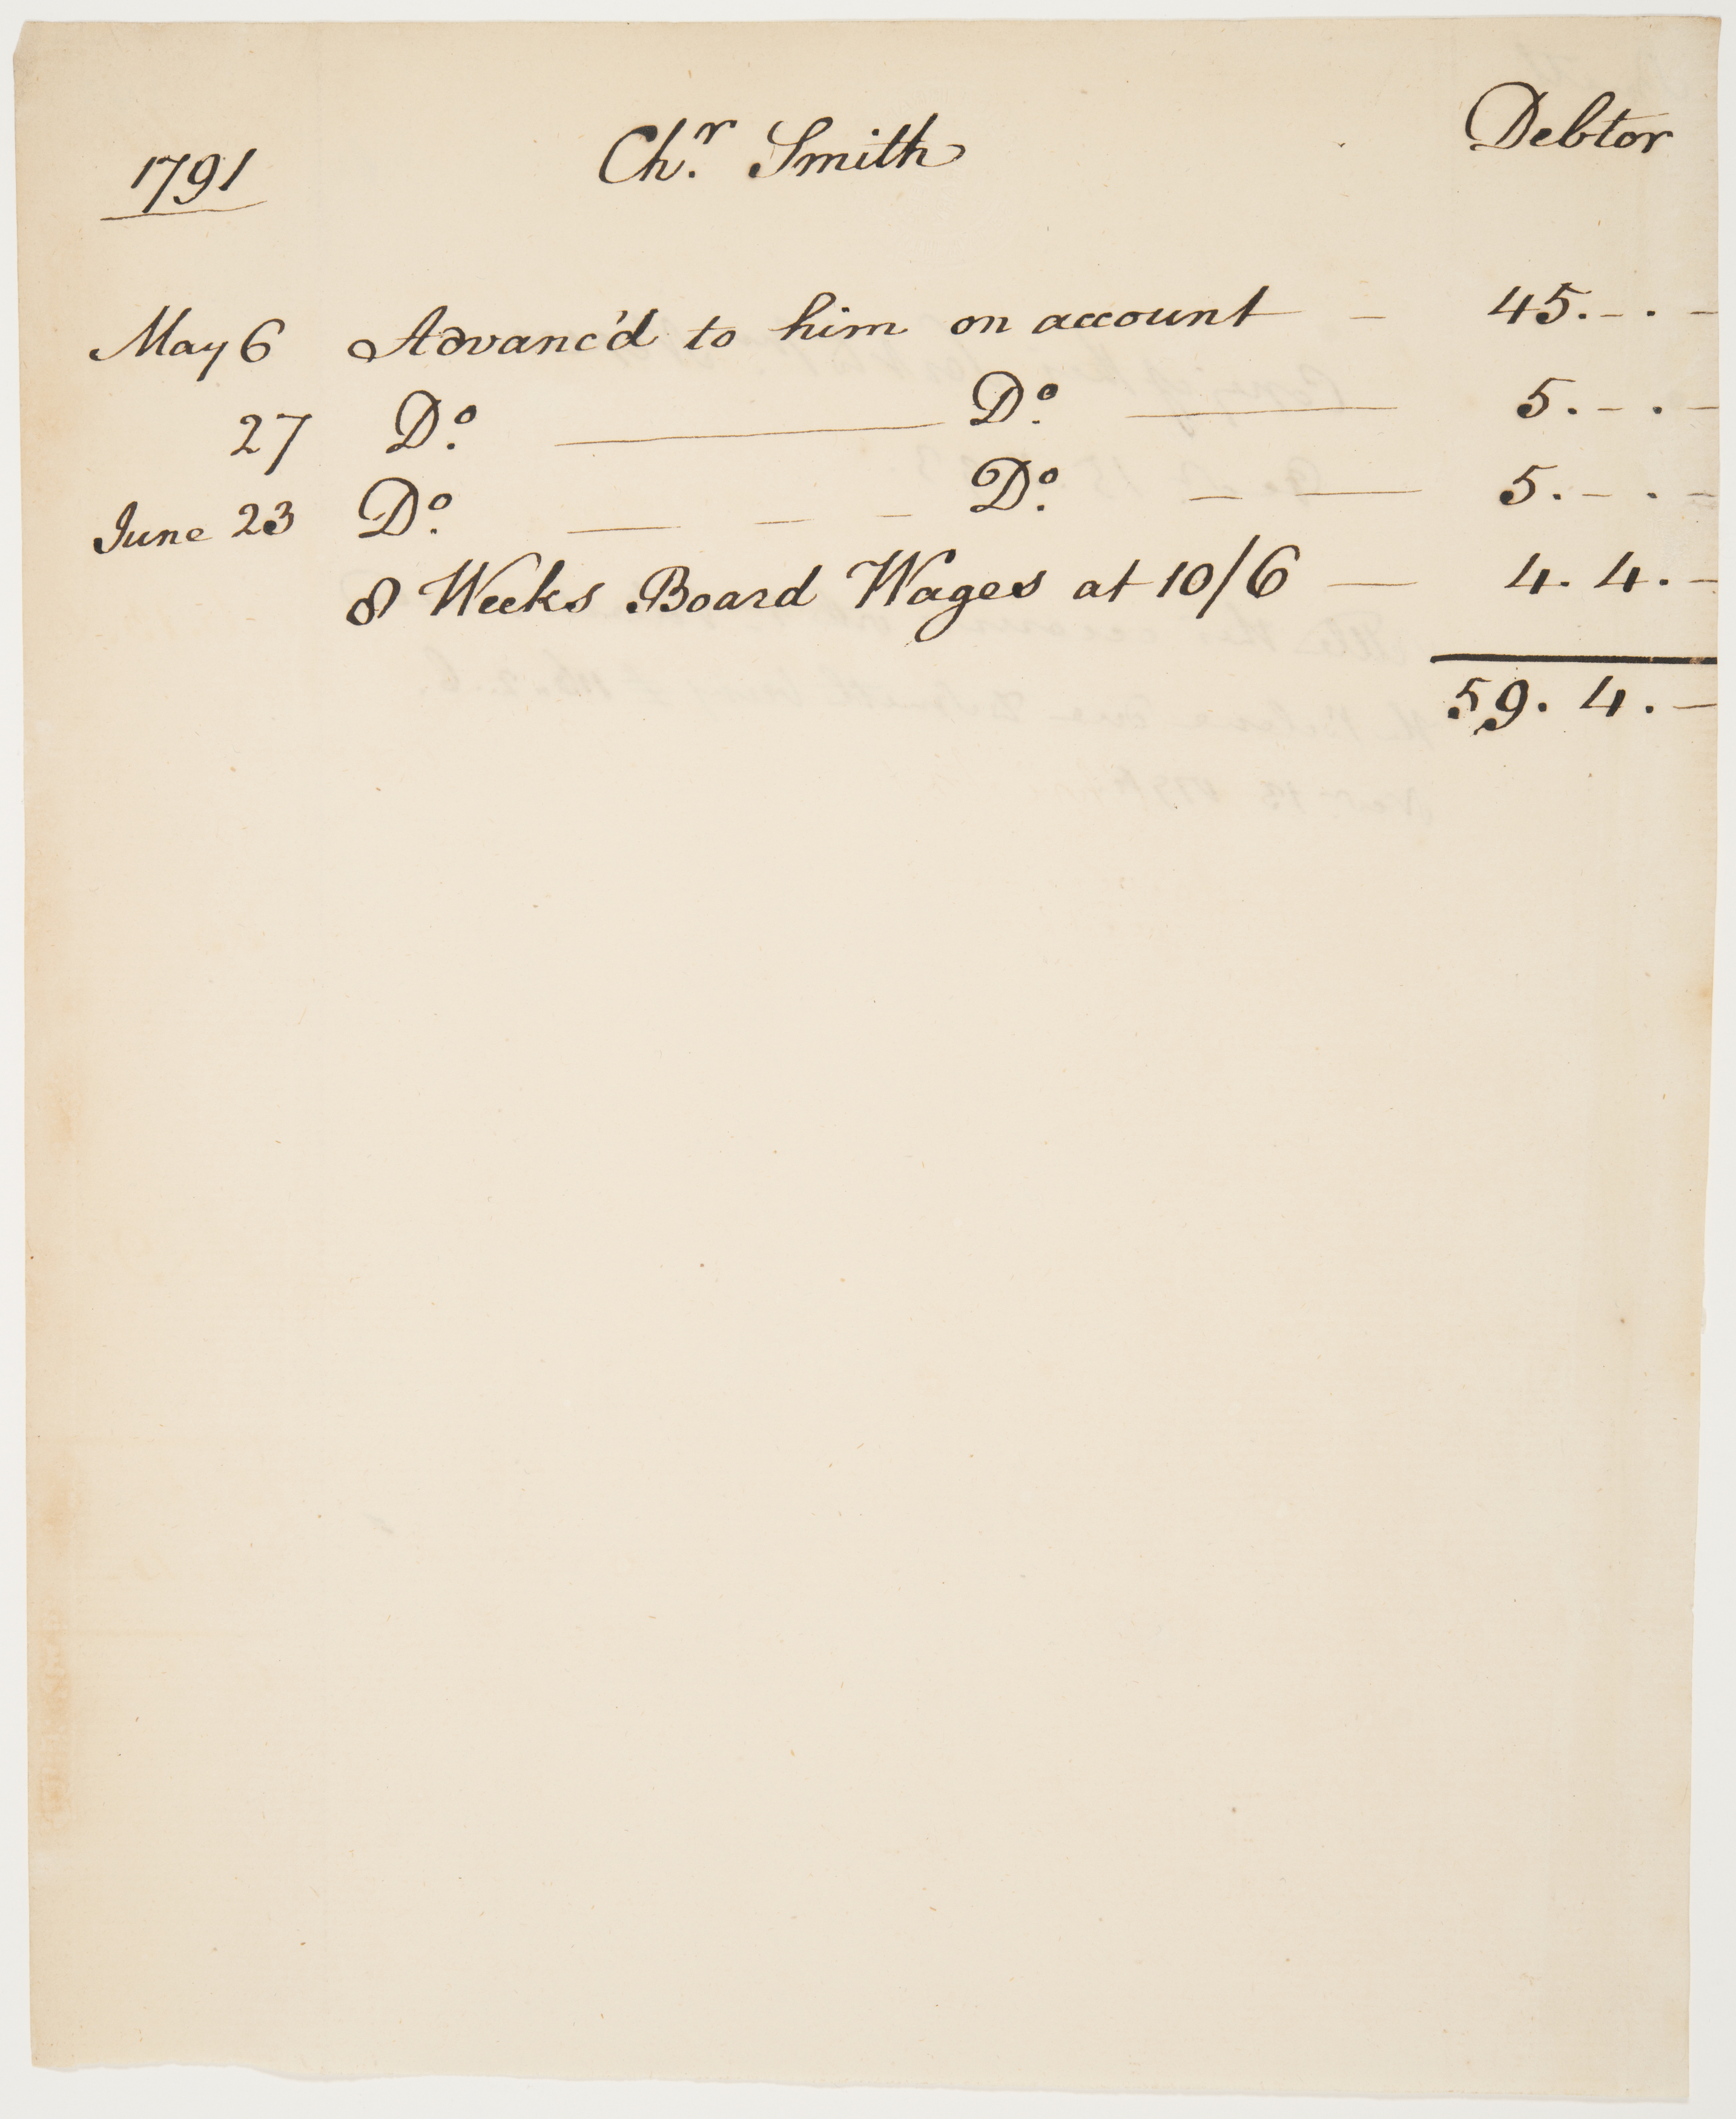 1791 Chr. Smith Debtor
May 6 Advanc'd to him on account — 45.-.-
27 Do. — Do. — 5.-.-
June 23 Do. — - - Do. - — 5.-.-
8 Weeks Board Wages at 10/6 — 4.4.-
59.4.-